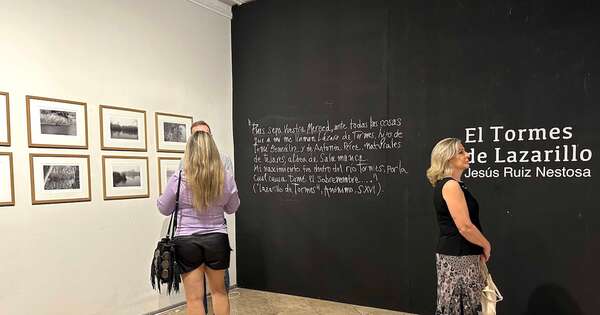 "Pues sepa Vuestra Merced, ante todas las cosas
que a mí me llaman Lázaro de Tormes, hijo de
Tomé González, y de Antona Pérez, naturales
de Tejares, aldea de Salamanca.
Mi nacimiento fue dentro del río Tormes, por la
cual causa tomé el sobrenombre....."
("Lazarillo de Tormes", Anónimo, S.XVI).
El Tormes
de Lazarillo
Jesús Ruiz Nestosa